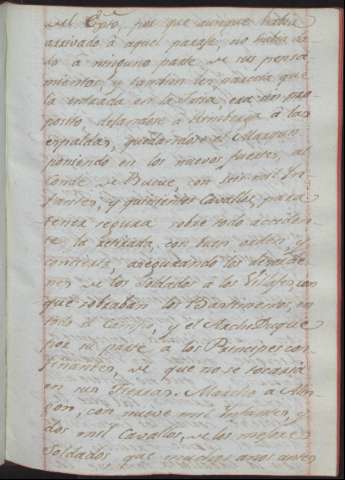 del Exto, por que aunque havia
arrivado à aquel parage, no havia da-
do à ninguno parte de sus pensa
mientos, y tambien les parecia que
la entrada en la Frisia, era des pro
posito, dejandose à à las
espaldas, quedandose el Marques
poniendo en los nuevos fuertes, al
Conde de Bucue, con seis mil In-
fantes, y quinientos Cavallos, para
tener segura sobre todo acciden-
te, la retirada, con buen orden, y
concierto, asegurando los
nes de los Soldados à los Villages, con
que sobraban los Bastimentos, en
todo el Campo, y el Archi Duque
por su parte à los Principes con-
finantes, de que no se tocaria
en sus Tierras. Marcho à
con nueve mil Infantes, y
dos mil Cavallos, de los mejores
Soldados, que en muchos años antes